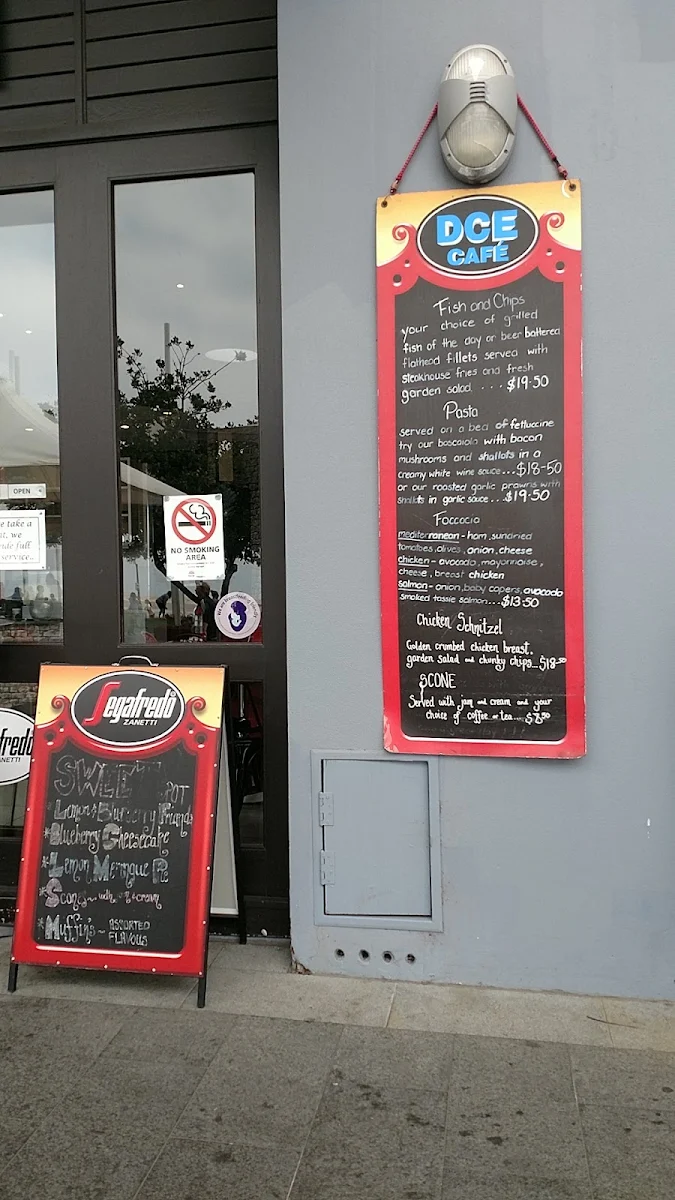 DCE
CAFÉ
Fish and Chips
your choice of grilled
fish of the day or beer battered
flathead fillets served with
steakhouse fries and fresh
garden salad.....$19.50
Pasta
served on a bed of fettuccine
try our boscaiola with bacon
mushrooms and shallots in a
creamy white wine sauce...$18-50
or our roasted garlic prawns with
shallots in garlic sauce...$19.50
Foccacia
mediterranean - ham, sundried
tomatoes, olives, onion, cheese
chicken - avocado, mayonnaise,
cheese, breast chicken
salmon - onion, baby capers, avocado
smoked tassie salmon...$13.50
Chicken Schnitzel
Golden crumbed chicken breast.
garden salad and chunky chips...$18.50
SCONE
Served with jam and cream and your
choice of coffee or tea...$7.50
OPEN
e take a
t, we
ide full
service..
NO SMOKING
AREA
Segafredo
ZANETTI
fredo
NETTI
SWEET SPOT
*Lemon & Blueberry Friands
*Blueberry Cheesecake
*Lemon Meringue Pie
*Scones ~ with jam & cream
*Muffin's ~ ASSORTED
FLAVOUS